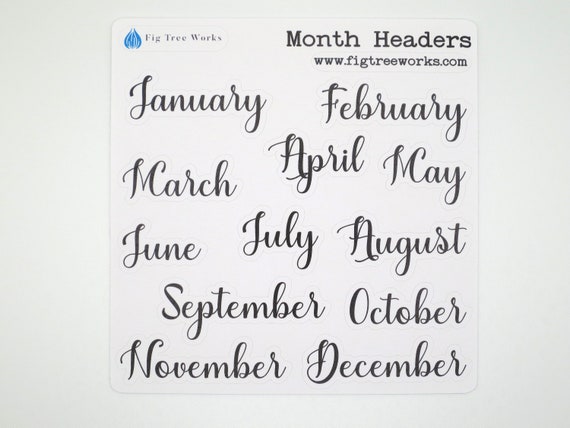 Fig Tree Works
Month Headers
www.figtreeworks.com
January February
April May
March
June July August
September October
November December